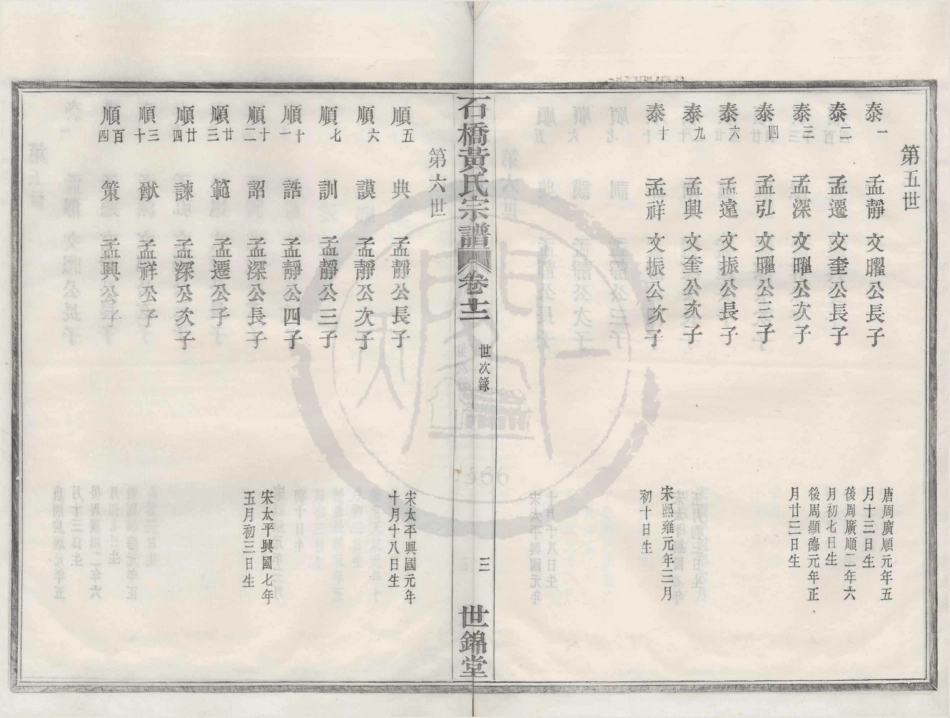 第五世
泰一 孟靜 文曜公長子 唐周廣順元年五月十三日生
泰二 孟遷 文奎公長子 後周廣順二年六月初七日生
泰三 孟深 文曜公次子 後周顯德元年正月廿二日生
泰四 孟弘 文曜公三子
泰六 孟遠 文振公長子
泰九 孟興 文奎公次子
泰十 孟祥 文振公次子 宋熙雍元年三月初十日生
石橋黃氏宗譜 卷十二 世次錄 三 世錦堂
第六世
順五 典 孟靜公長子 宋太平興國元年十月十八日生
順六 謨 孟靜公次子
順七 訓 孟靜公三子
順十一 誥 孟靜公四子
順十二 詔 孟深公長子 宋太平興國七年五月初三日生
順廿三 範 孟遷公子
順廿四 諫 孟深公次子
順三十 猷 孟祥公子
順百四 策 孟興公子